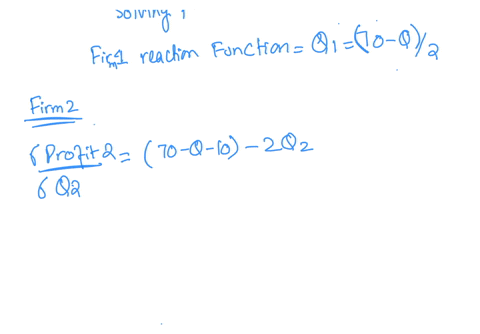 solving ;
Firm1 reaction Function = Q1 = (70-Q)/2
Firm 2
δ Profit 2 = (70-Q-10) - 2Q2
δ Q2